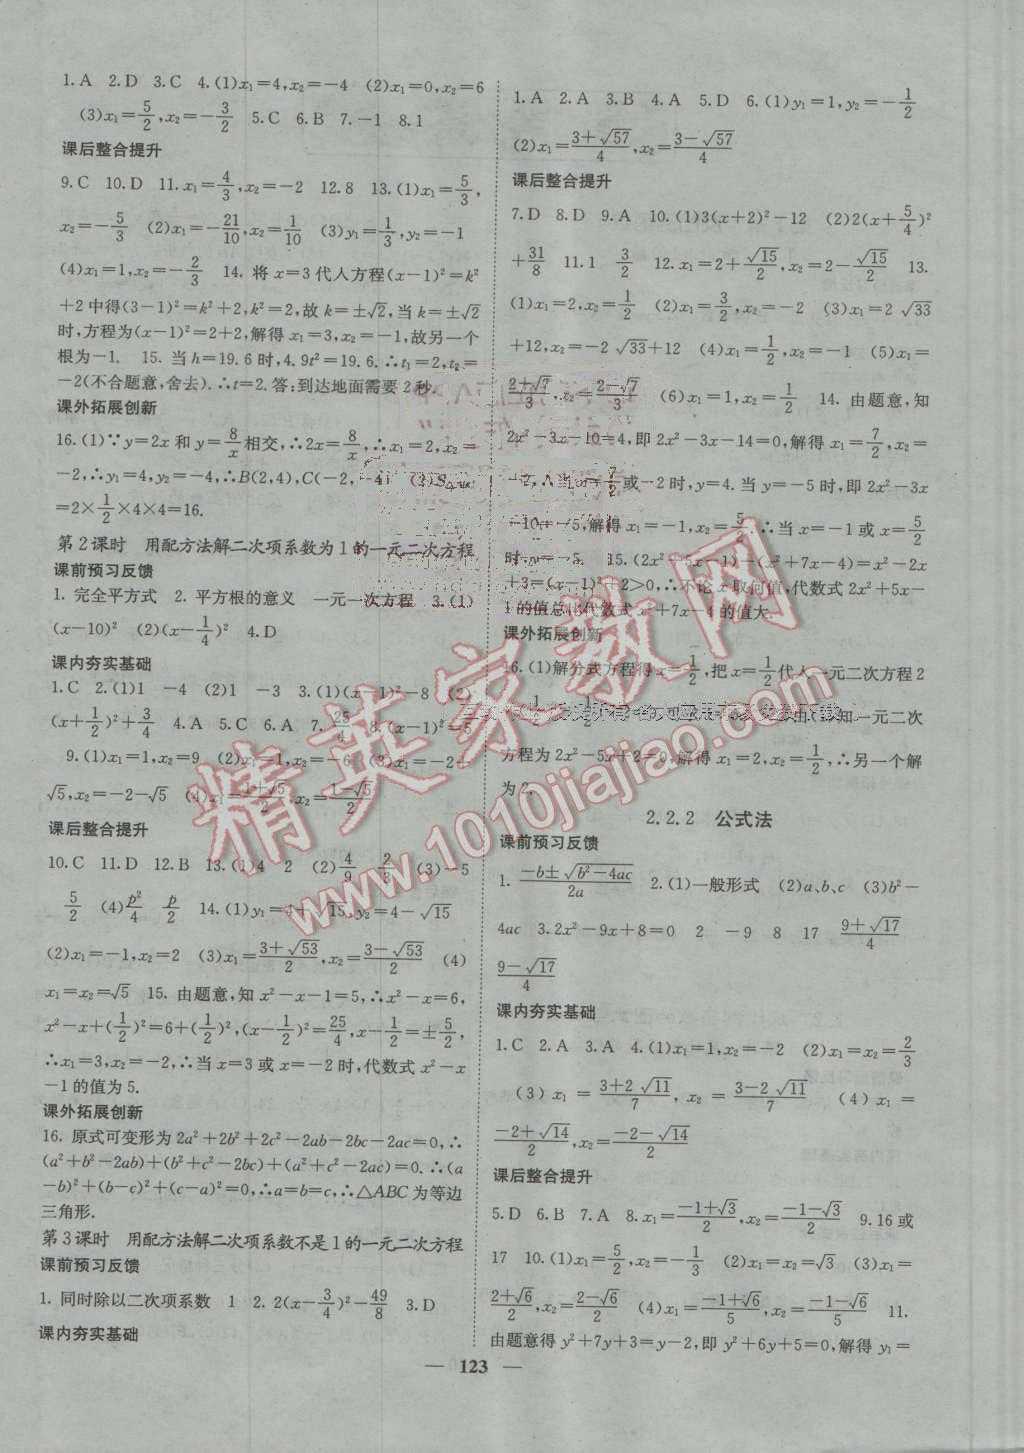 1. A 2. D 3. C 4. (1)x₁=4,x₂=-4 (2)x₁=0,x₂=6
(3)x₁=5/2,x₂=-3/2 5. C 6. B 7. -1 8. 1
课后整合提升
9. C 10. D 11. x₁=4/3,x₂=-2 12. 8 13. (1)x₁=5/3,
x₂=-5/3 (2)x₁=-21/10,x₂=1/10 (3)y₁=1/3,y₂=-1
(4)x₁=1,x₂=-2/3 14. 将 x=3 代人方程(x-1)²=k²
+2 中得(3-1)²=k²+2,k²=2,故 k=±√2,当 k=±√2
时,方程为(x-1)²=2+2,解得 x₁=3,x₂=-1,故另一个
根为-1. 15. 当 h=19.6 时,4.9t²=19.6.∴t₁=2,t₂=
-2(不合题意,舍去).∴t=2.答:到达地面需要 2 秒.
课外拓展创新
16. (1)∵y=2x 和 y=8/x 相交,∴2x=8/x,∴x₁=2,x₂=
-2,∴y₁=4,y₂=-4,∴B(2,4),C(-2,-4) (2)S
=2×1/2×4×4=16.
第 2 课时 用配方法解二次项系数为 1 的一元二次方程
课前预习反馈
1. 完全平方式 2. 平方根的意义 一元一次方程 3. (1)
(x-10)² (2)(x-1/4)² 4. D
课内夯实基础
1. C 2. (1)1 -4 (2)1 -3 3. (1)(x-1)²-8 (2)
(x+1/2)²+3/4 4. A 5. C 6. A 7. 25/4 8. (x-1)²=5
9. (1)x₁=1,x₂=9 (2)x₁=1,x₂=-6 (3)x₁=-2+
√5,x₂=-2-√5 (4)x₁=1+√5/2,x₂=1-√5/2
课后整合提升
10. C 11. D 12. B 13. (1)4 2 (2)4/9 2/3 (3)-5
5/2 (4)p²/4 p/2 14. (1)y₁=4+√15,y₂=4-√15
(2)x₁=-1,x₂=2 (3)x₁=3+√53/2,x₂=3-√53/2 (4)
x₁=x₂=√5 15. 由题意,知 x²-x-1=5,∴x²-x=6,
x²-x+(1/2)²=6+(1/2)²,(x-1/2)²=25/4,x-1/2=±5/2
∴x₁=3,x₂=-2,∴当 x=3 或 x=-2 时,代数式 x²-x
-1 的值为 5.
课外拓展创新
16. 原式可变形为 2a²+2b²+2c²-2ab-2bc-2ac=0,∴
(a²+b²-2ab)+(b²+c²-2bc)+(a²+c²-2ac)=0.∴(a
-b)²+(b-c)²+(c-a)²=0,∴a=b=c,∴△ABC 为等边
三角形.
第 3 课时 用配方法解二次项系数不是 1 的一元二次方程
课前预习反馈
1. 同时除以二次项系数 1 2. 2(x-3/4)²-49/8 3. D
课内夯实基础
1. A 2. A 3. B 4. A 5. D 6. (1)y₁=1,y₂=-1/2
(2)x₁=3+√57/4,x₂=3-√57/4
课后整合提升
7. D 8. D 9. A 10. (1)3(x+2)²-12 (2)2(x+5/4)²
+31/8 11. 1 3/2 12. x₁=2+√15/2,x₂=2-√15/2 13.
(1)x₁=2,x₂=1/2 (2)x₁=3/2,x₂=-2 (3)x₁=2√33
+12,x₂=-2√33+12 (4)x₁=1/2,x₂=-1 (5)x₁=
2+√7/3,x₂=2-√7/3 (6)x₁=1,x₂=1/2 14. 由题意,知
2x²-3x-10=4,即 2x²-3x-14=0,解得 x₁=7/2,x₂=
-2,∴当 x=7/2或-2 时,y=4.当 y=-5 时,即 2x²-3x
-10=-5,解得 x₁=-1,x₂=5/2.∴当 x=-1 或 x=5/2
时,y=-5. 15. (2x²+5x-1)-(x²+7x-4)=x²-2x
+3=(x-1)²+2>0,∴不论 x 取何值,代数式 2x²+5x-
1 的值总比代数式 x²+7x-4 的值大.
课外拓展创新
16. (1)解分式方程得 x=1/2,把 x=1/2代人一元二次方程 2
知一元二次
方程为 2x²-5x+2=0,解得 x₁=2,x₂=1/2,∴另一个解
为 2.
2.2.2 公式法
课前预习反馈
1. -b±√b²-4ac/2a 2. (1)一般形式 (2)a、b、c (3)b²-
4ac 3. 2x²-9x+8=0 2 -9 8 17 9+√17/4
9-√17/4
课内夯实基础
1. C 2. A 3. A 4. (1)x₁=1,x₂=-2 (2)x₁=x₂=2/3
(3) x₁=3+2√11/7, x₂=3-2√11/7 (4) x₁=
-2+√14/2,x₂=-2-√14/2
课后整合提升
5. D 6. B 7. A 8. x₁=-1+√3/2,x₂=-1-√3/2 9. 16 或
17 10. (1)x₁=5/2,x₂=-1/3 (2)x₁=x₂=√3 (3)x₁=
2+√6/2,x₂=2-√6/2 (4)x₁=-1+√6/5,x₂=-1-√6/5 11.
由题意得 y²+7y+3=y-2,即 y²+6y+5=0,解得 y₁=
— 123 —
精英家教网
www.1010jiajiao.com